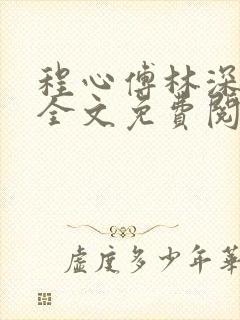 程心傅林深
全文免費閱
虛度多少年華